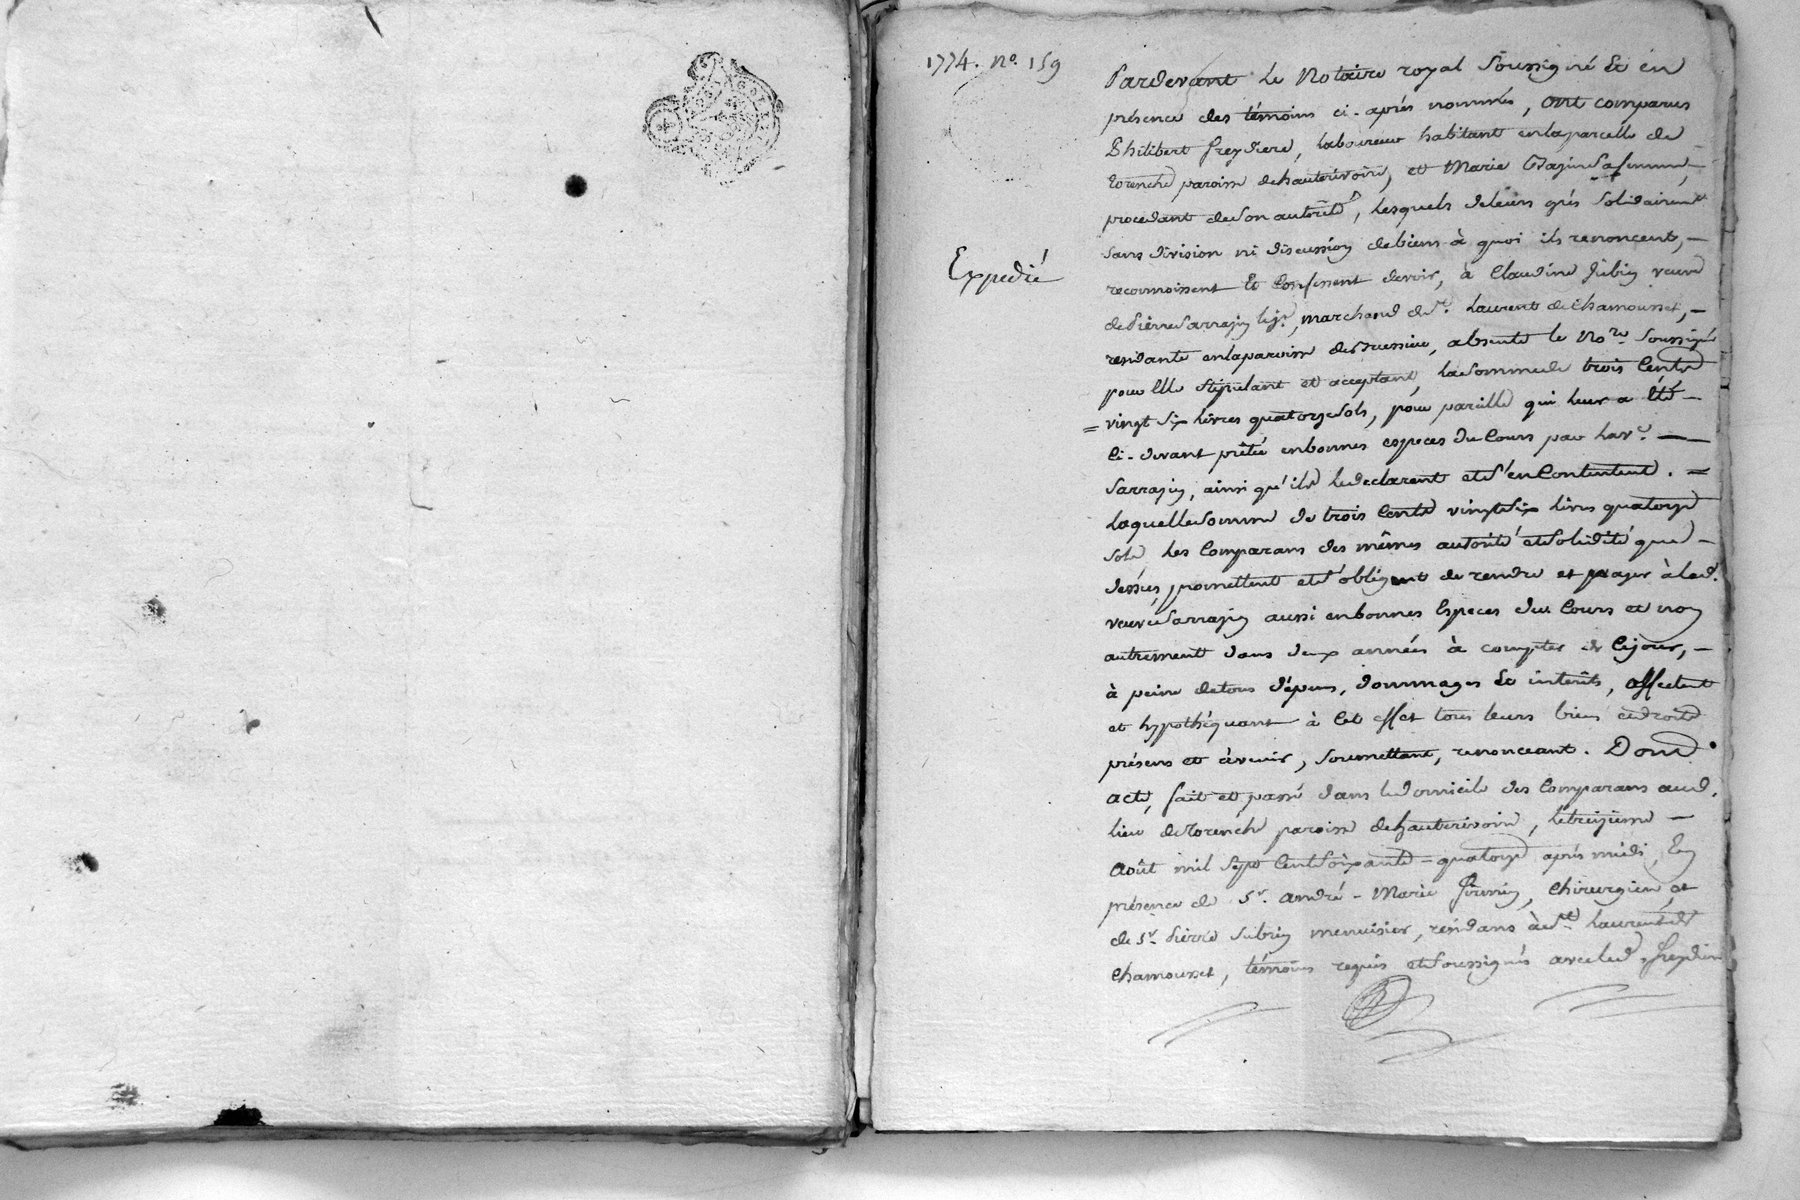 1774. No. 159
Expedié
Pardevant le Notaire royal soussigné et en
présence des témoins ci-après nommés, ont comparus
Philibert freydiere, laboureur habitant en la parcelle de
torenche paroisse de hauterivoire, et Marie sa femme,
procedant de son autorité, lesquels de leurs grés solidairemt
sans division ni discussion de biens à quoi ils renoncent, -
reconnoissent et confessent devoir, à Claudine Jubin veuve
de Pierre Sarrazin marchand de St. Laurent de Chamousset, -
residante en la paroisse de absente le Nore soussigné
pour elle stipulant et acceptant, la somme de trois cents
vingt six livres quatorze sols, pour pareille qui leur a été -
ci-devant prêtée en bonnes especes du cours par lad. ve. -
Sarrazin, ainsi qu'ils le declarent et s'en contentent. -
laquelle somme de trois cents vingt six livres quatorze
sols les comparans des mêmes autorité et solidité que -
dessus, promettent et s'obligent de rendre et payer à lad.
veuve Sarrazin aussi en bonnes especes du cours et non
autrement dans deux années à compter de ce jour, -
à peine de tous dépens, dommages et interêts, affectent
et hypothéquant à cet effet tous leurs biens et droits
présens et à venir, soumettant, renonceant. Dont
acte, fait et passé dans le domicile des comparans aud.
lieu de torenche paroisse de hauterivoire, le treizieme -
Août mil sept cent soixante-quatorze après midi, En
présence de Sr. andré-Marie chirurgien, et
de Sr. Pierre Subrin menuisier, residans à St. Laurent de
Chamousset, témoins requis et soussignés avec led. freydiere